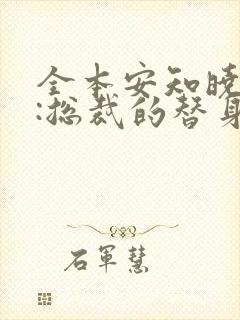 全本安知晓
:总裁的替身
石军慧